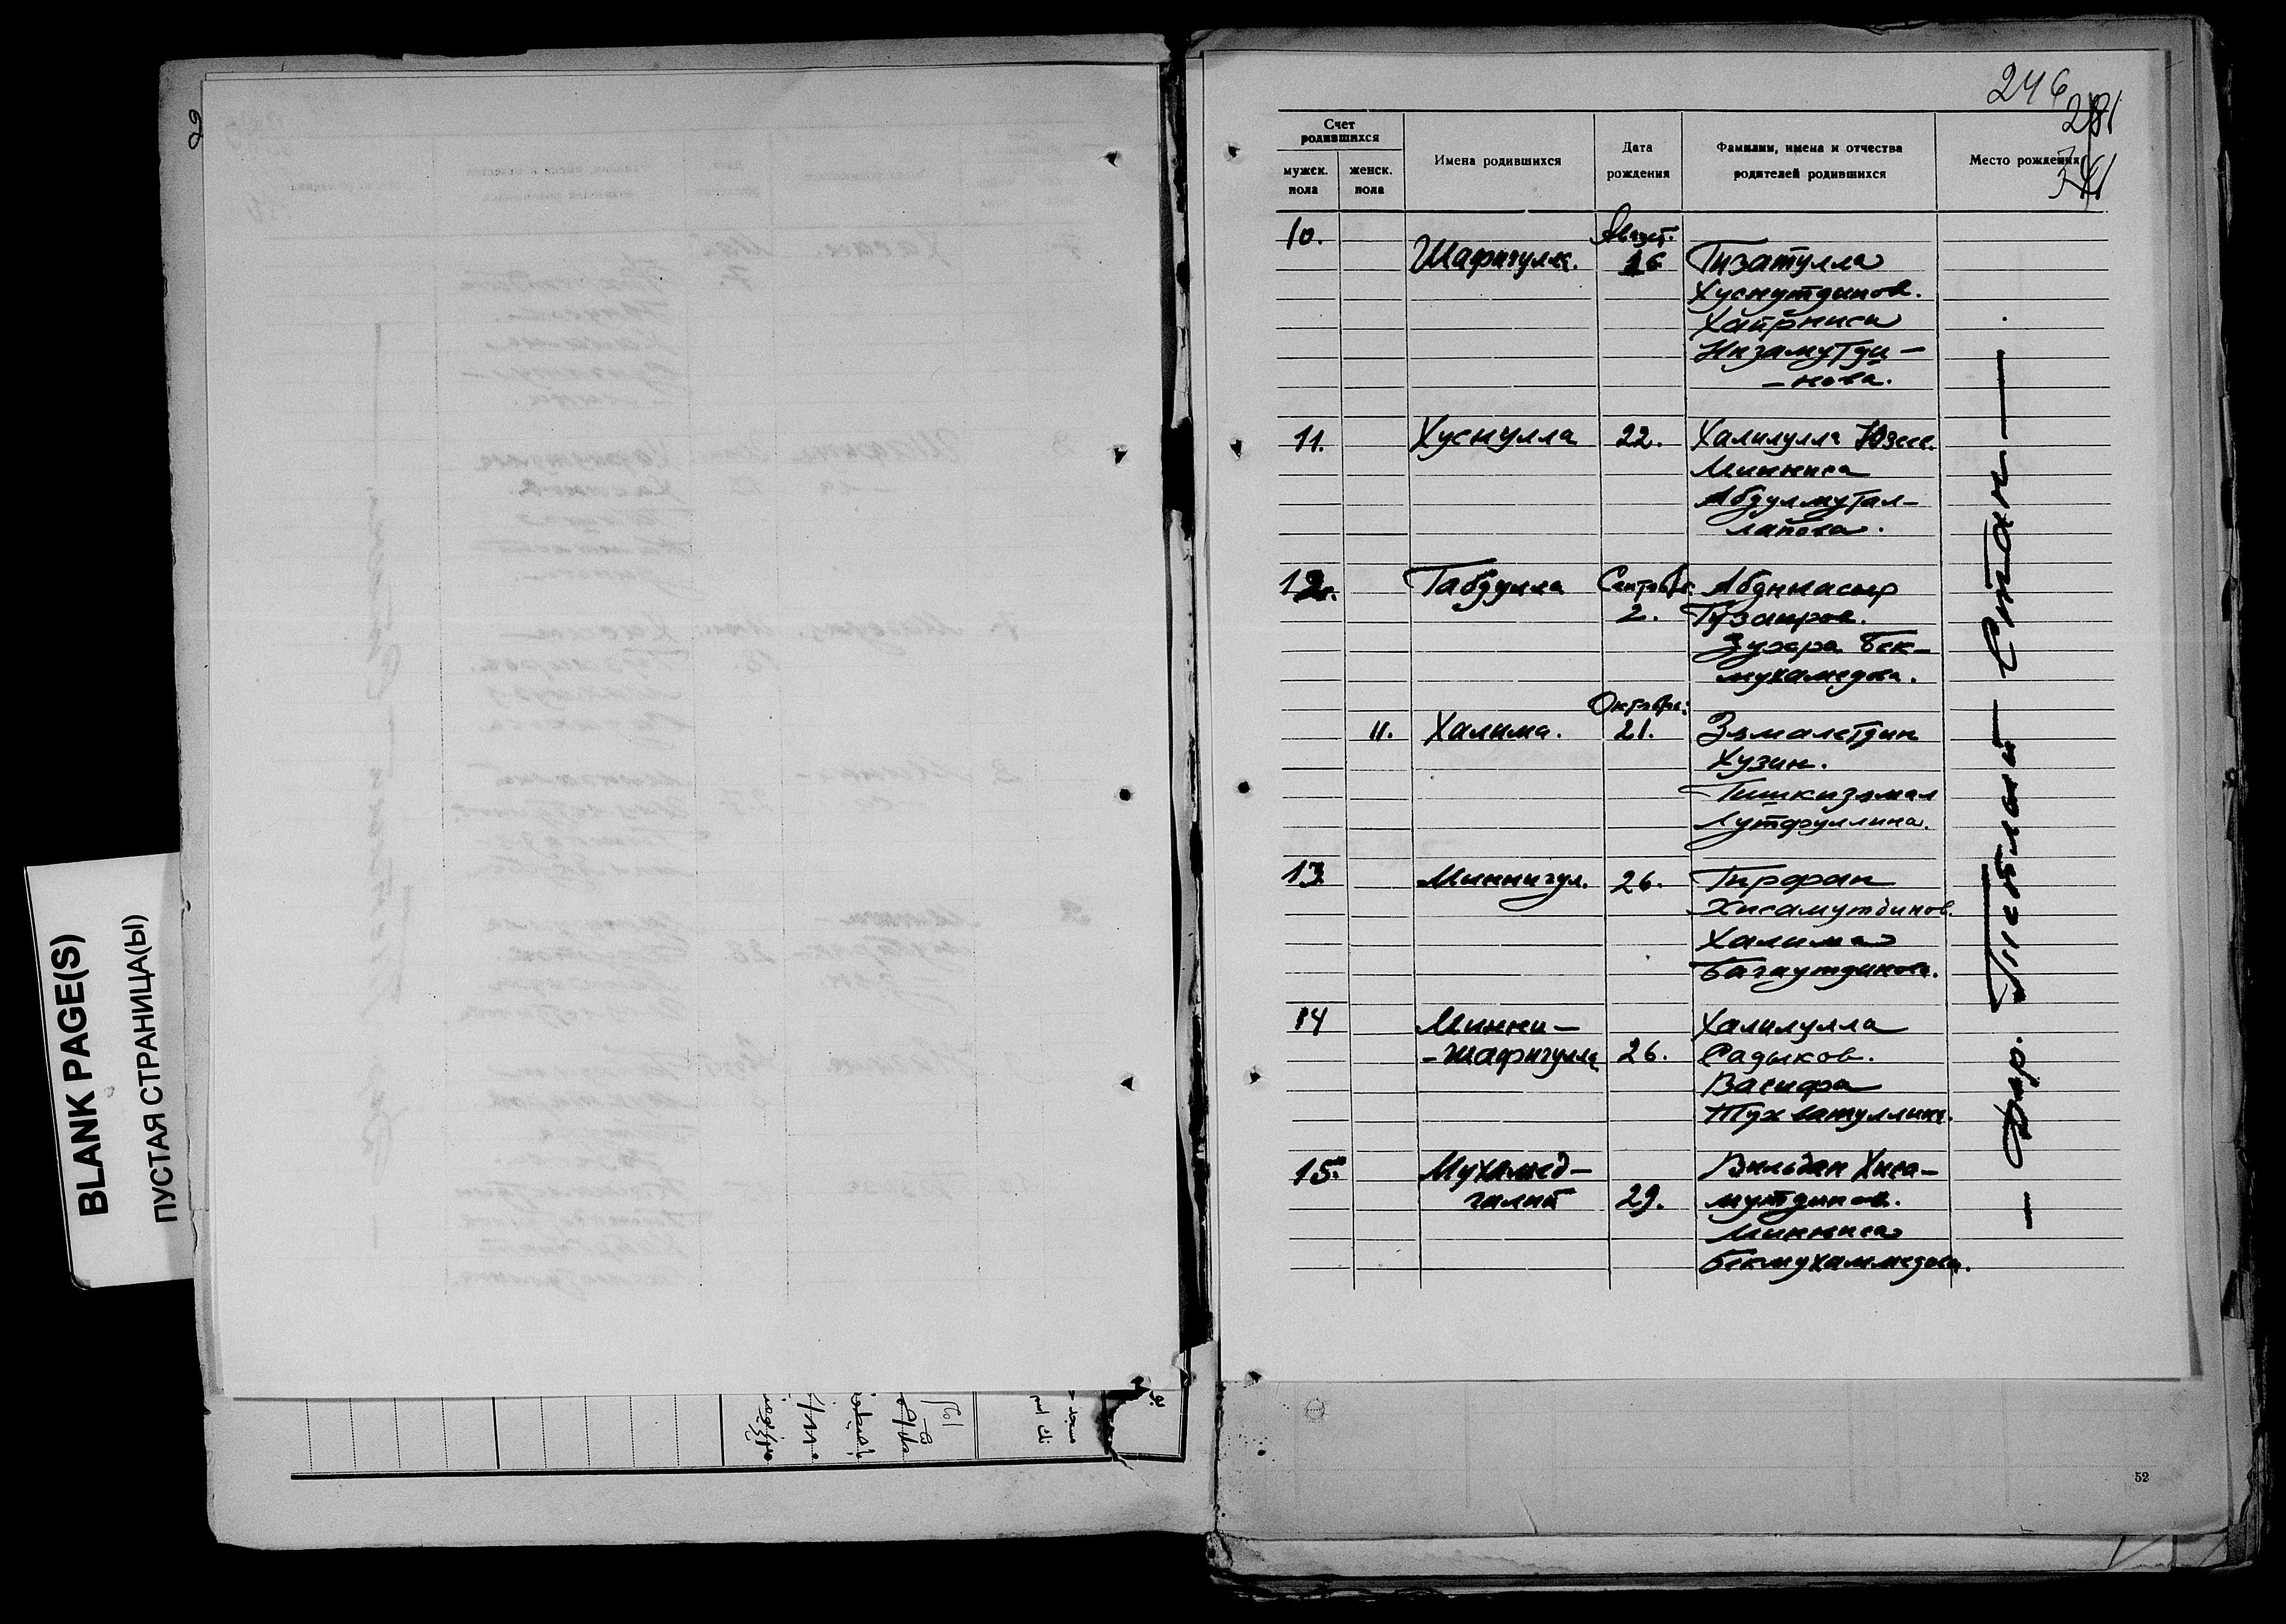 BLANK PAGE(S)
ПУСТАЯ СТРАНИЦА(Ы)
246
281
341
Счет родившихся
мужск. пола
женск. пола
Имена родившихся
Дата рождения
Фамилии, имена и отчества родителей родившихся
Место рождения
10. Август.
Шафигулл. 16 Гизатулла
Хуснутдинов.
Хайрниса
Низамутди-
-нова.
11. Хуснулла 22. Халилулла
Минниса
Абдулмутал-
лапова.
12. Габдулла Сентябр. Абдннасыр
2. Губаиров.
Зухера Бек-
мухамедова.
Октября:
11. Халима. 21. Зъмалетдин
Хузин.
Гашкизъмал
Лутфуллина.
13 Миннигул. 26. Гирфан
Хисамутдинов.
Халима
Багаутдинова.
14 Минни- Халилулла
-шафигулла 26. Садыков.
Васифа
Тухватуллина.
15. Мухамед- Вильдан Хиса-
галит 29. мутдинов.
Минниса
Бекмухаммедова.
— Дер. — Стан —
52